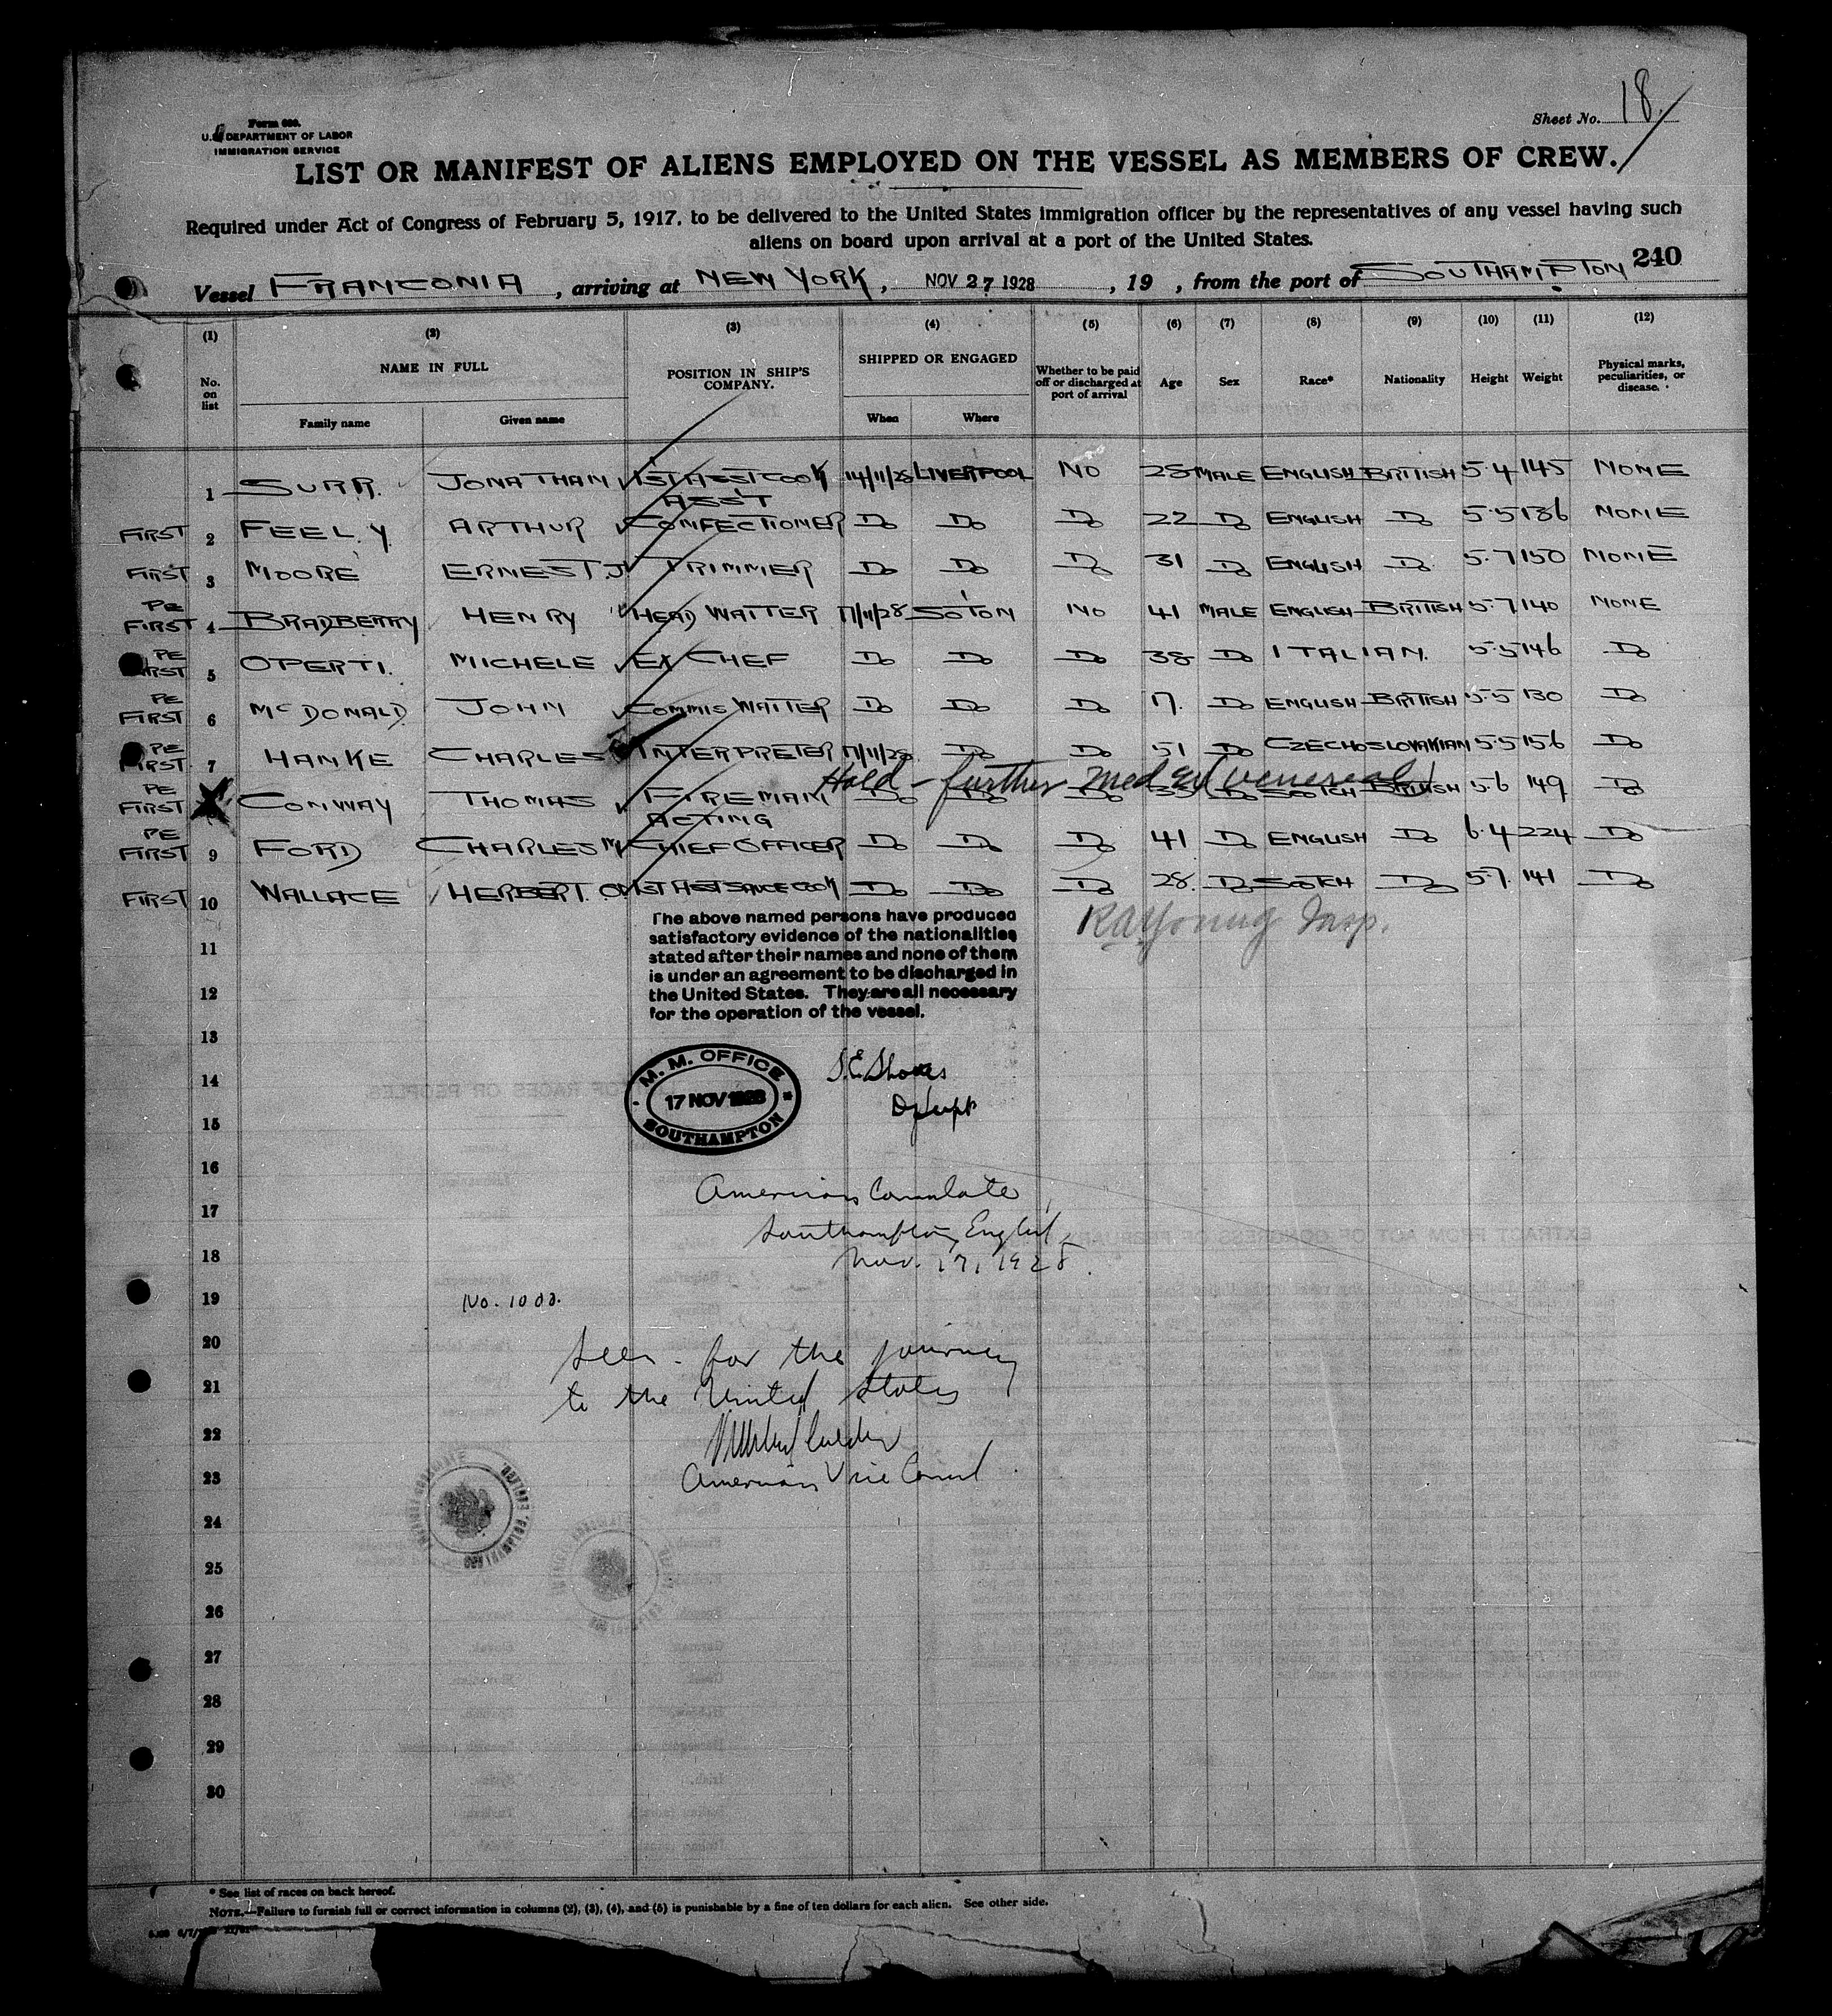 Form 680.
U.S. DEPARTMENT OF LABOR
IMMIGRATION SERVICE
Sheet No. 18.
LIST OR MANIFEST OF ALIENS EMPLOYED ON THE VESSEL AS MEMBERS OF CREW.
Required under Act of Congress of February 5, 1917, to be delivered to the United States immigration officer by the representatives of any vessel having such
aliens on board upon arrival at a port of the United States.
240
Vessel FRANCONIA, arriving at NEW YORK, NOV 27 1928, 19 , from the port of SOUTHAMPTON
(1) (2) (3) (4) (5) (6) (7) (8) (9) (10) (11) (12)
No. on list NAME IN FULL POSITION IN SHIP'S COMPANY. SHIPPED OR ENGAGED Whether to be paid off or discharged at port of arrival Age Sex Race* Nationality Height Weight Physical marks, peculiarities, or disease.
Family name Given name When Where
1 SURR. JONATHAN 1ST ASST COOK 14/11/28 LIVERPOOL NO 28 MALE ENGLISH BRITISH 5.4 145 NONE
FIRST 2 FEELY. ARTHUR ASS'T CONFECTIONER Do Do Do 22 Do ENGLISH Do 5.5 136 NONE
FIRST 3 MOORE ERNEST. J TRIMMER Do Do Do 31 Do ENGLISH Do 5.7 150 NONE
PE FIRST 4 BRADBERRY HENRY HEAD WAITER 17/11/28 SO'TON NO 41 MALE ENGLISH BRITISH 5.7 140 NONE
PE FIRST 5 OPERTI. MICHELE EX CHEF Do Do Do 38 Do ITALIAN. 5.5 146 Do
PE FIRST 6 McDONALD. JOHN COMMIS WAITER Do Do Do 17. Do ENGLISH BRITISH 5.5 130 Do
PE FIRST 7 HANKE CHARLES INTERPRETER 17/11/28 Do Do 51 Do CZECHOSLOVAKIAN 5.5 156 Do
Hold - further med ex (venereal)
PE FIRST CONWAY THOMAS FIREMAN Do Do Do Do SCOTCH BRITISH 5.6 149 Do
PE FIRST 9 FORD CHARLES M ACTING CHIEF OFFICER Do Do Do 41 Do ENGLISH Do 6.4 224 Do
FIRST 10 WALLACE HERBERT. O. 1ST ASST SAUCE COOK Do Do Do 28. Do SCOTCH Do 5.7. 141 Do
RAYoung Insp.
The above named persons have produced
satisfactory evidence of the nationalities
stated after their names and none of them
is under an agreement to be discharged in
the United States. They are all necessary
for the operation of the vessel.
11
12
13
14
15
M. M. OFFICE
17 NOV 1928
SOUTHAMPTON
16
American Consulate
17
Southampton, England,
18
Nov. 17, 1928.
19
No. 1000.
20
Seen - for the journey
21
to the United States
22
23
American Vice Consul
24
25
26
27
28
29
30
* See list of races on back hereof.
NOTE.—Failure to furnish full or correct information in columns (2), (3), (4), and (5) is punishable by a fine of ten dollars for each alien. See other side.